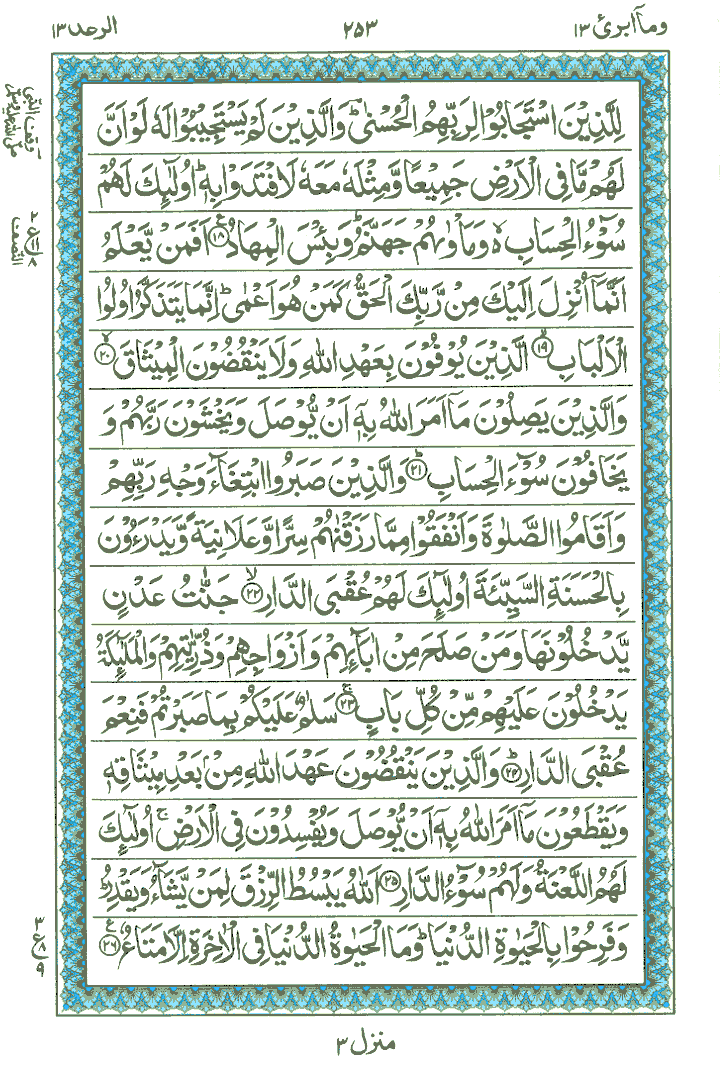 وما أبرئ ١٣
٢٥٣
الرعد ١٣
لِلَّذِيْنَ اسْتَجَابُوْا لِرَبِّهِمُ الْحُسْنٰىؕ وَالَّذِيْنَ لَمْ يَسْتَجِيْبُوْا لَهٗ لَوْ اَنَّ
لَهُمْ مَّا فِى الْاَرْضِ جَمِيْعًا وَّمِثْلَهٗ مَعَهٗ لَافْتَدَوْا بِهٖؕ اُولٰٓئِكَ لَهُمْ
سُوْٓءُ الْحِسَابِ ۙ وَمَاْوٰىهُمْ جَهَنَّمُؕ وَبِئْسَ الْمِهَادُ ۧ﴿١٨﴾ اَفَمَنْ يَّعْلَمُ
اَنَّمَاۤ اُنْزِلَ اِلَيْكَ مِنْ رَّبِّكَ الْحَقُّ كَمَنْ هُوَ اَعْمٰىؕ اِنَّمَا يَتَذَكَّرُ اُولُوا
الْاَلْبَابِ ۙ﴿١٩﴾ الَّذِيْنَ يُوْفُوْنَ بِعَهْدِ اللّٰهِ وَلَا يَنْقُضُوْنَ الْمِيْثَاقَ ۙ﴿٢٠﴾
وَالَّذِيْنَ يَصِلُوْنَ مَاۤ اَمَرَ اللّٰهُ بِهٖۤ اَنْ يُّوْصَلَ وَيَخْشَوْنَ رَبَّهُمْ وَ
يَخَافُوْنَ سُوْٓءَ الْحِسَابِ ؕ﴿٢١﴾ وَالَّذِيْنَ صَبَرُوا ابْتِغَآءَ وَجْهِ رَبِّهِمْ
وَاَقَامُوا الصَّلٰوةَ وَاَنْفَقُوْا مِمَّا رَزَقْنٰهُمْ سِرًّا وَّعَلَانِيَةً وَّيَدْرَءُوْنَ
بِالْحَسَنَةِ السَّيِّئَةَ اُولٰٓئِكَ لَهُمْ عُقْبَى الدَّارِ ۙ﴿٢٢﴾ جَنّٰتُ عَدْنٍ
يَّدْخُلُوْنَهَا وَمَنْ صَلَحَ مِنْ اٰبَآئِهِمْ وَاَزْوَاجِهِمْ وَذُرِّيّٰتِهِمْ وَالْمَلٰٓئِكَةُ
يَدْخُلُوْنَ عَلَيْهِمْ مِّنْ كُلِّ بَابٍ ۚ﴿٢٣﴾ سَلٰمٌ عَلَيْكُمْ بِمَا صَبَرْتُمْ فَنِعْمَ
عُقْبَى الدَّارِ ؕ﴿٢٤﴾ وَالَّذِيْنَ يَنْقُضُوْنَ عَهْدَ اللّٰهِ مِنْۢ بَعْدِ مِيْثَاقِهٖ
وَيَقْطَعُوْنَ مَاۤ اَمَرَ اللّٰهُ بِهٖۤ اَنْ يُّوْصَلَ وَيُفْسِدُوْنَ فِى الْاَرْضِ ۙ اُولٰٓئِكَ
لَهُمُ اللَّعْنَةُ وَلَهُمْ سُوْٓءُ الدَّارِ ﴿٢٥﴾ اَللّٰهُ يَبْسُطُ الرِّزْقَ لِمَنْ يَّشَآءُ وَيَقْدِرُؕ
وَفَرِحُوْا بِالْحَيٰوةِ الدُّنْيَاؕ وَمَا الْحَيٰوةُ الدُّنْيَا فِى الْاٰخِرَةِ اِلَّا مَتَاعٌ ۧ﴿٢٦﴾
وقف النبى صلى الله عليه وسلم
٢
ع
٨
النصف
٣
ع
٨
٩
منزل ٣